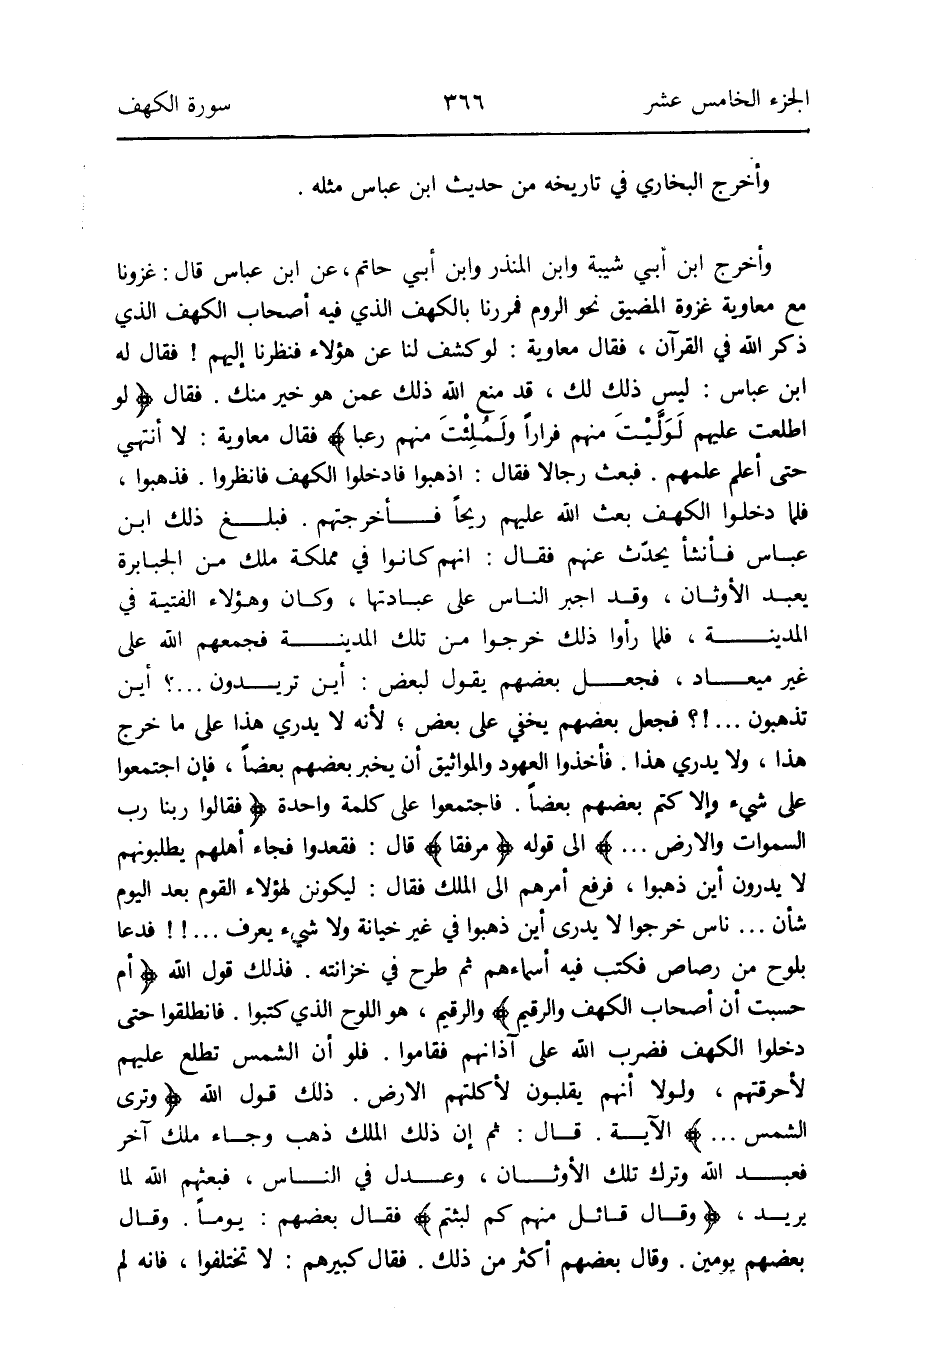 الجزء الخامس عشر ٣٦٦ سورة الكهف
وأخرج البخاري في تاريخه من حديث ابن عباس مثله .
وأخرج ابن أبي شيبة وابن المنذر وابن أبي حاتم، عن ابن عباس قال : غزونا
مع معاوية غزوة المضيق نحو الروم فمررنا بالكهف الذي فيه أصحاب الكهف الذي
ذكر الله في القرآن ، فقال معاوية : لو كشف لنا عن هؤلاء فنظرنا إليهم ! فقال له
ابن عباس : ليس ذلك لك ، قد منع الله ذلك عمن هو خير منك . فقال ﴿ لو
اطلعت عليهم لَوَلَّيْتَ منهم فراراً ولَمُلِئْتَ منهم رعبا ﴾ فقال معاوية : لا أنتهي
حتى أعلم علمهم . فبعث رجالا فقال : اذهبوا فادخلوا الكهف فانظروا . فذهبوا ،
فلما دخلوا الكهف بعث الله عليهم ريحاً فأخرجتهم . فبلغ ذلك ابن
عباس فأنشأ يحدّث عنهم فقال : انهم كانوا في مملكة ملك من الجبابرة
يعبد الأوثان ، وقد اجبر الناس على عبادتها ، وكان وهؤلاء الفتية في
المدينة ، فلما رأوا ذلك خرجوا من تلك المدينة فجمعهم الله على
غير ميعاد ، فجعل بعضهم يقول لبعض : أين تريدون ...؟ أين
تذهبون ...!؟ فجعل بعضهم يخفي على بعض ؛ لأنه لا يدري هذا على ما خرج
هذا ، ولا يدري هذا . فأخذوا العهود والمواثيق أن يخبر بعضهم بعضاً ، فإن اجتمعوا
على شيء وإلا كتم بعضهم بعضاً . فاجتمعوا على كلمة واحدة ﴿ فقالوا ربنا رب
السموات والارض ... ﴾ الى قوله ﴿ مرفقا ﴾ قال : فقعدوا فجاء أهلهم يطلبونهم
لا يدرون أين ذهبوا ، فرفع أمرهم الى الملك فقال : ليكونن لهؤلاء القوم بعد اليوم
شأن ... ناس خرجوا لا يدرى أين ذهبوا في غير خيانة ولا شيء يعرف ...!! فدعا
بلوح من رصاص فكتب فيه أسماءهم ثم طرح في خزانته . فذلك قول الله ﴿ أم
حسبت أن أصحاب الكهف والرقيم ﴾ والرقيم ، هو اللوح الذي كتبوا . فانطلقوا حتى
دخلوا الكهف فضرب الله على آذانهم فقاموا . فلو أن الشمس تطلع عليهم
لأحرقتهم ، ولولا أنهم يقلبون لأكلتهم الارض . ذلك قول الله ﴿ وترى
الشمس ... ﴾ الآية . قال : ثم إن ذلك الملك ذهب وجاء ملك آخر
فعبد الله وترك تلك الأوثان ، وعدل في الناس ، فبعثهم الله لما
يريد ، ﴿ وقال قائل منهم كم لبثتم ﴾ فقال بعضهم : يوماً . وقال
بعضهم يومين . وقال بعضهم أكثر من ذلك . فقال كبيرهم : لا تختلفوا ، فانه لم